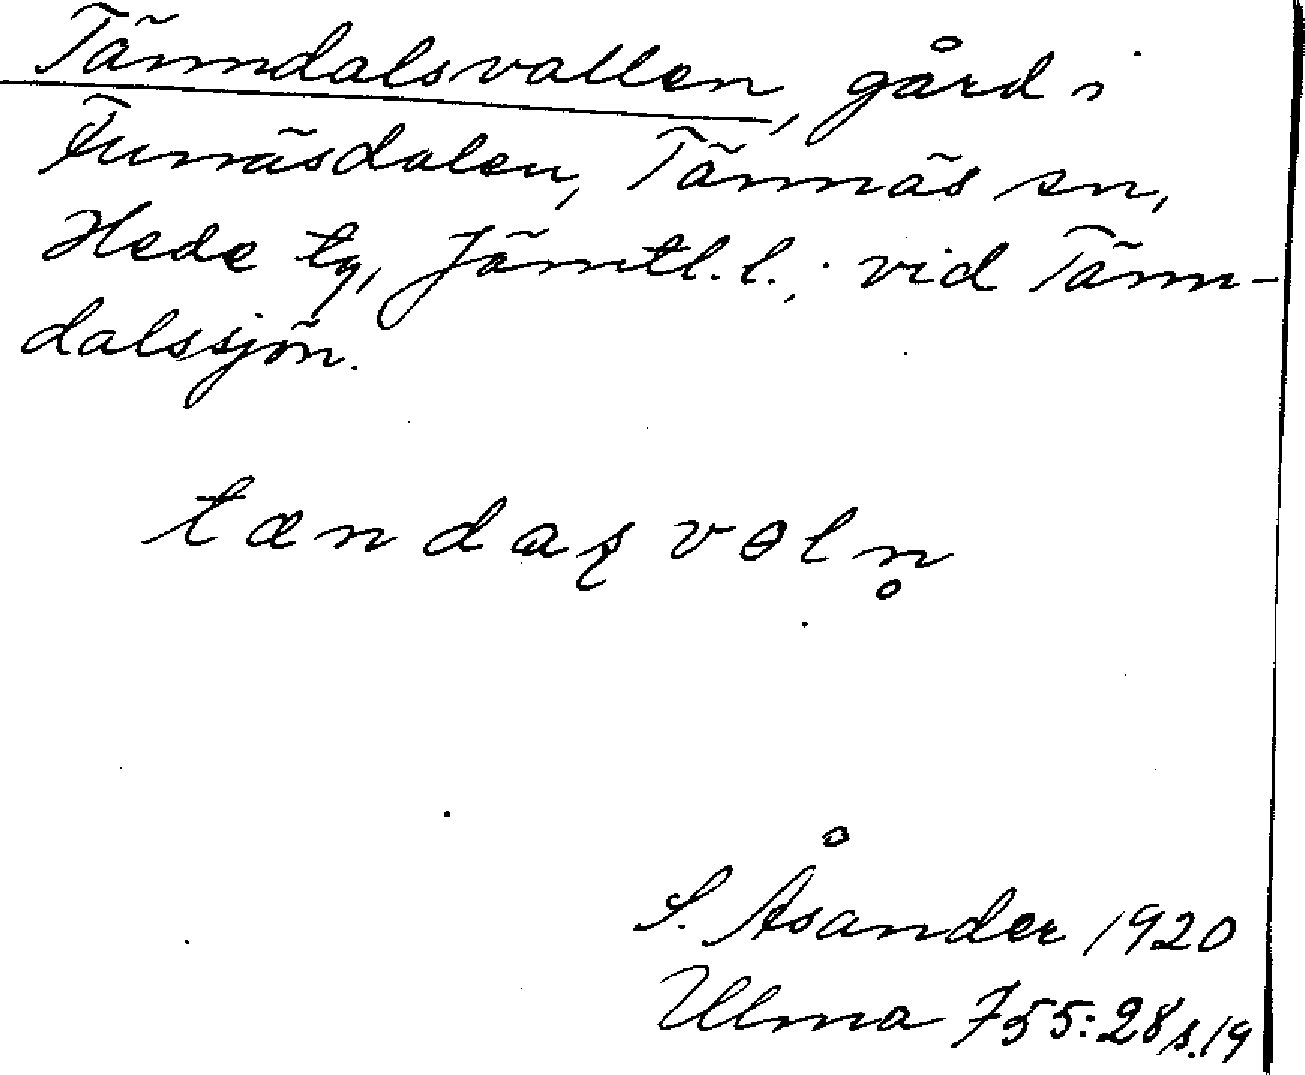 Tänndalsvallen, gård i
Funäsdalen, Tännäs sn,
Hede tg, Jämtl. l.; vid Tänn-
dalssjön.
tændaʂvɵln̥
S. Åsander 1920
Ulma 755:28 s. 19